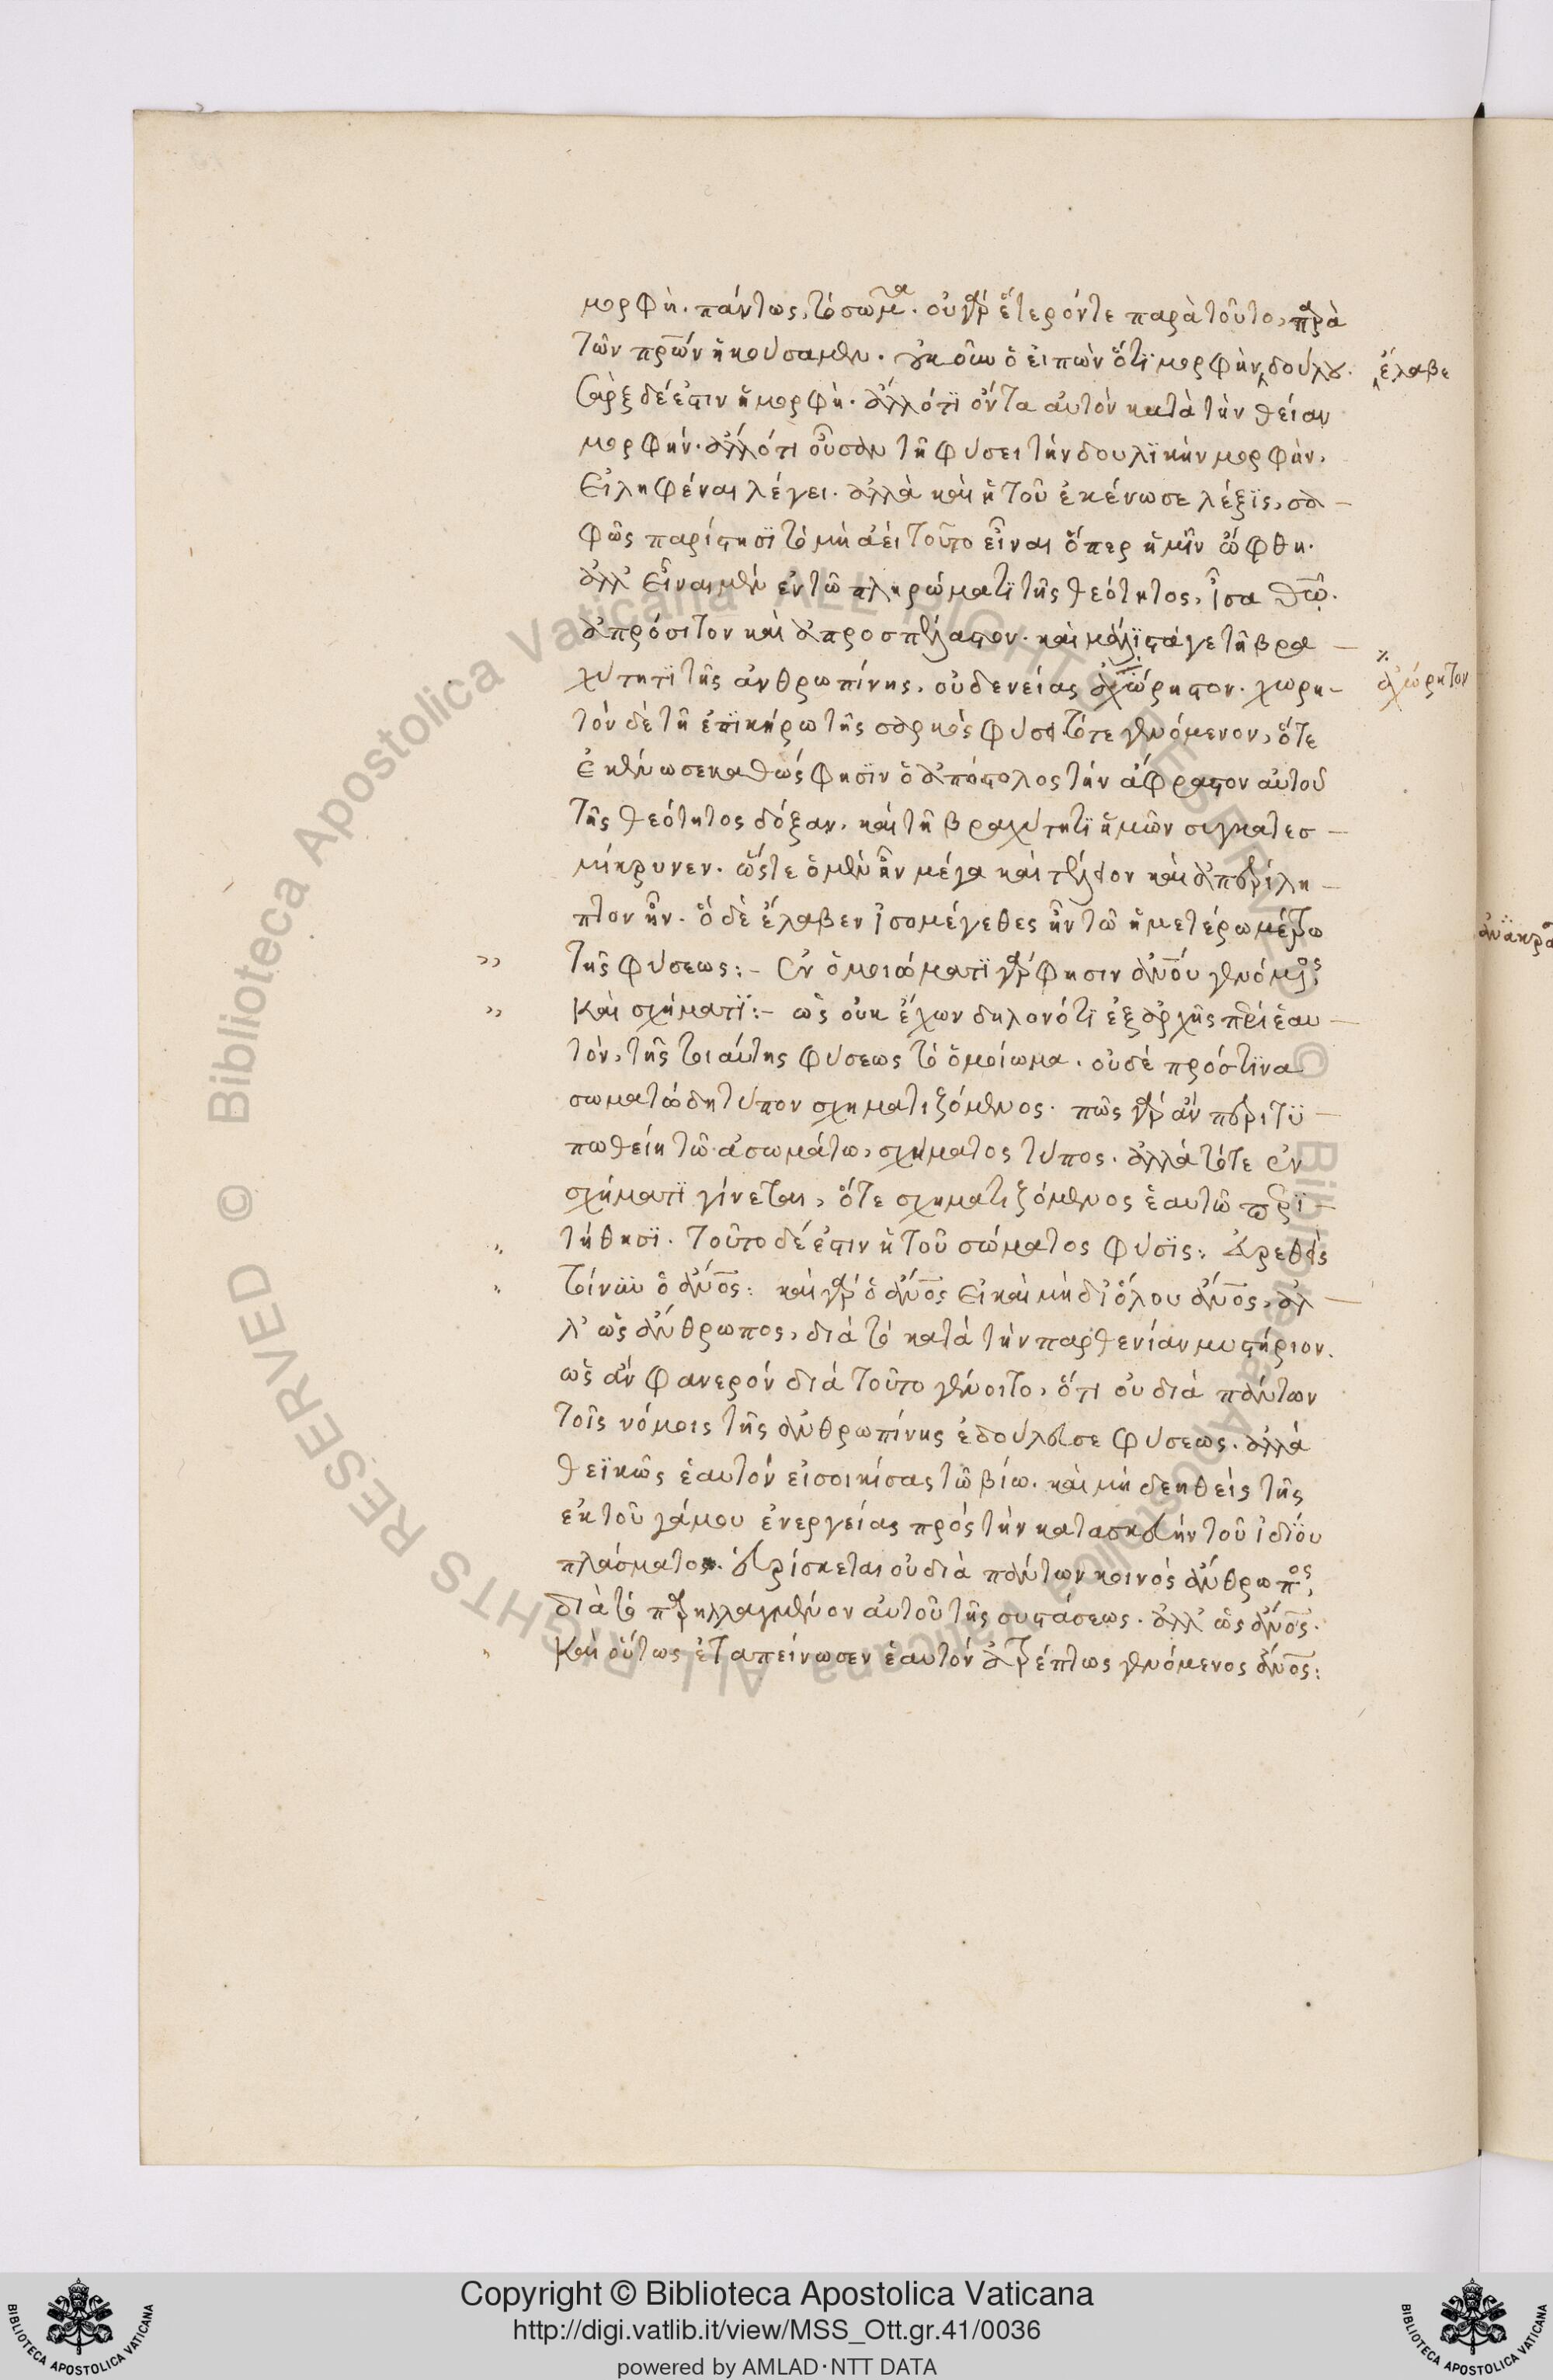 μορφή. πάντως, τὸ σῶμα. οὐ γὰρ ἕτερόν τε παρὰ τοῦτο, παρὰ
τῶν πρων ἠκούσαμεν. οὐκ οὖν ὁ εἰπὼν ὅτι μορφὴν δούλου. ἔλαβε
σάρξ δέ ἐστιν ἡ μορφή. ἄλλό τι ὄντα αὐτὸν κατὰ τὴν θείαν
μορφήν. ἄλλό τι οὖσαν τῆ φύσει τὴν δουλϊκὴν μορφὴν,
εἰληφέναι λέγει. ἀλλὰ καὶ ἡ τοῦ ἐκένωσε λέξϊς, σα-
φῶς παρίστησϊ τὸ μὴ ἀεὶ τοῦτο εἶναι ὅπερ ἡμῖν ὤφθη.
ἀλλ' εἶναι μὲν ἐν τῶ πληρώματϊ τῆς θεότητος, ἶσα θω.
ἀπρόσιτον καὶ ἀπροσπέλαστον. καὶ μάλϊστά γε τῆ βρα-
χύτητϊ τῆς ἀνθρωπίνης, οὐδενείας ἀχώρηστον. χωρη- ἀχώρητον
τὸν δὲ τῆ ἐπϊκήρω τῆς σαρκὸς φύσει τότε γενόμενον, ὅτε
ἐκένωσε καθώς φησϊν ὁ ἀπόστολος τὴν ἄφραστον αὐτοῦ
τῆς θεότητος δόξαν, καὶ τῆ βραχύτητϊ ἡμῶν συγκατεσ-
μίκρυνεν. ὥστε ὃ μὲν ἦν μέγα καὶ τέλειον καὶ ἀπερίλη-
πτον ἦν. ὃ δὲ ἔλαβεν ἰσομέγεθες ἦν τῶ ἡμετέρω μέτρω
τῆς φύσεως:- ἐν ὁμοιώματϊ γάρ φησιν ανου γενόμενος,
καὶ σχήματϊ:- ὡς οὐκ ἔχων δηλονότϊ ἐξ ἀρχῆς περὶ ἑαυ-
τὸν, τῆς τοιαύτης φύσεως τὸ ὁμοίωμα. οὐδὲ πρός τϊνα
σωματώδη τύπον σχηματιζόμενος. πῶς γὰρ ἂν περιτϋ-
πωθείη τῶ ἀσωμάτω, σχήματος τύπος. ἀλλὰ τότε ἐν
σχήματϊ γίνεται, ὅτε σχηματιζόμενος ἑαυτῶ περϊ-
τήθησϊ. τοῦτο δέ ἐστιν ἡ τοῦ σώματος φύσϊς:
ὁ ανος: καὶ γὰρ ὁ ανος εἰ καὶ μὴ δϊόλου ανος, ἀλ-
λ' ὡς ἄνθρωπος, διὰ τὸ κατὰ τὴν παρθενίαν μυστήριον.
ὡς ἂν φανερὸν διὰ τοῦτο γένοιτο, ὅτι οὐ διὰ πάντων
τοῖς νόμοις τῆς ἀνθρωπίνης ἐδούλευσε φύσεως. ἀλλὰ
θεϊκῶς ἑαυτὸν εἰσοικίσας τῶ βίω. καὶ μὴ δεηθεὶς τῆς
ἐκ τοῦ γάμου ἐνεργείας πρὸς τὴν κατασκευὴν τοῦ ἰδϊου
πλάσματος. εὑρίσκεται οὐ διὰ πάντων κοινὸς ἄνθρωπος,
διὰ τὸ παρηλλαγμένον αὐτοῦ τῆς συστάσεως. ἀλλ' ὡς ανος.
καὶ οὕτως ἐταπείνωσεν ἑαυτὸν ἀτρέπτως γενόμενος ανος:
Biblioteca Apostolica Vaticana ALL RIGHTS RESERVED ©
Copyright © Biblioteca Apostolica Vaticana
http://digi.vatlib.it/view/MSS_Ott.gr.41/0036
powered by AMLAD·NTT DATA
BIBLIOTECA APOSTOLICA VATICANA
BIBLIOTECA APOSTOLICA VATICANA